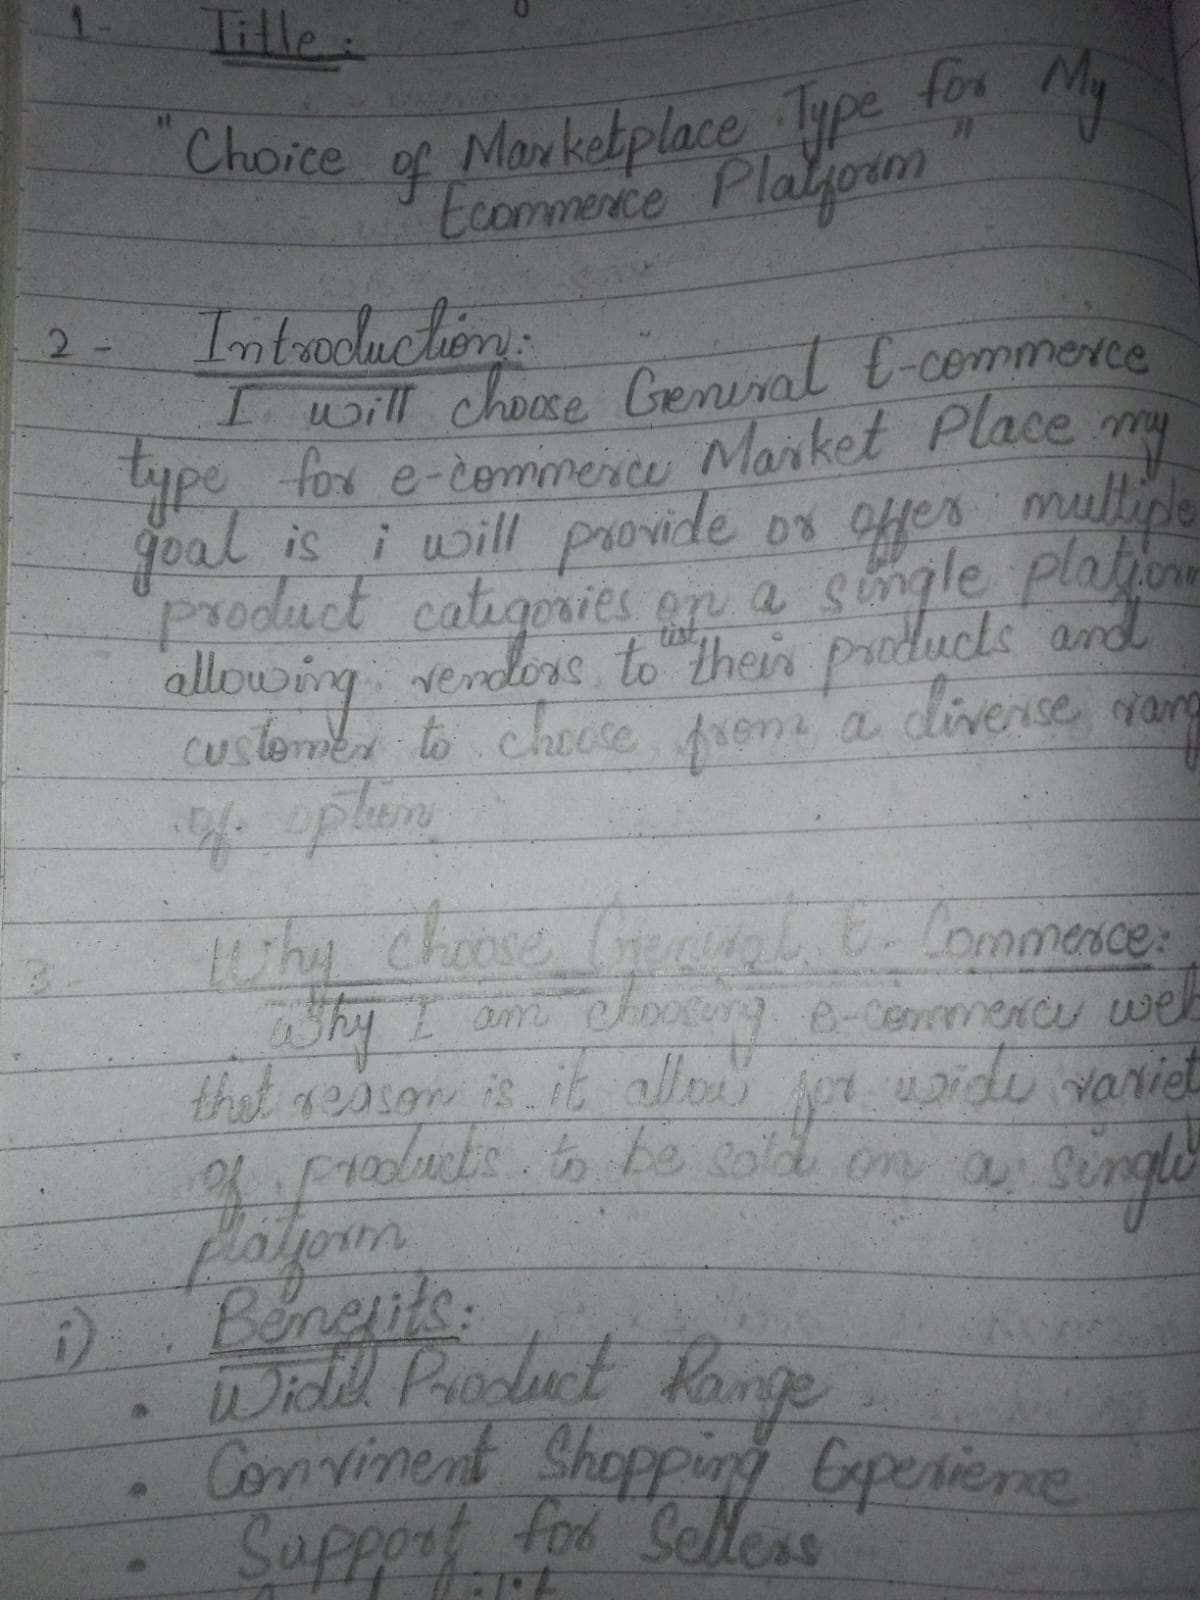 1- Title:
"Choice of Marketplace Type for My
Ecommerce Platform"
2- Introduction:
I will choose General E-commerce
type for e-commerce Market Place my
goal is i will provide or offer multiple
product categories on a single platform
allowing vendors to list their products and
customer to choose from a diverse rang
of option
3- Why choose General E-Commerce:
Why I am choosing e-commerce web
that reason is it allow for wide variet
of products to be sold on a single
platform
i) Benefits:
• Wide Product Range
• Convinent Shopping Experience
• Support for Sellers